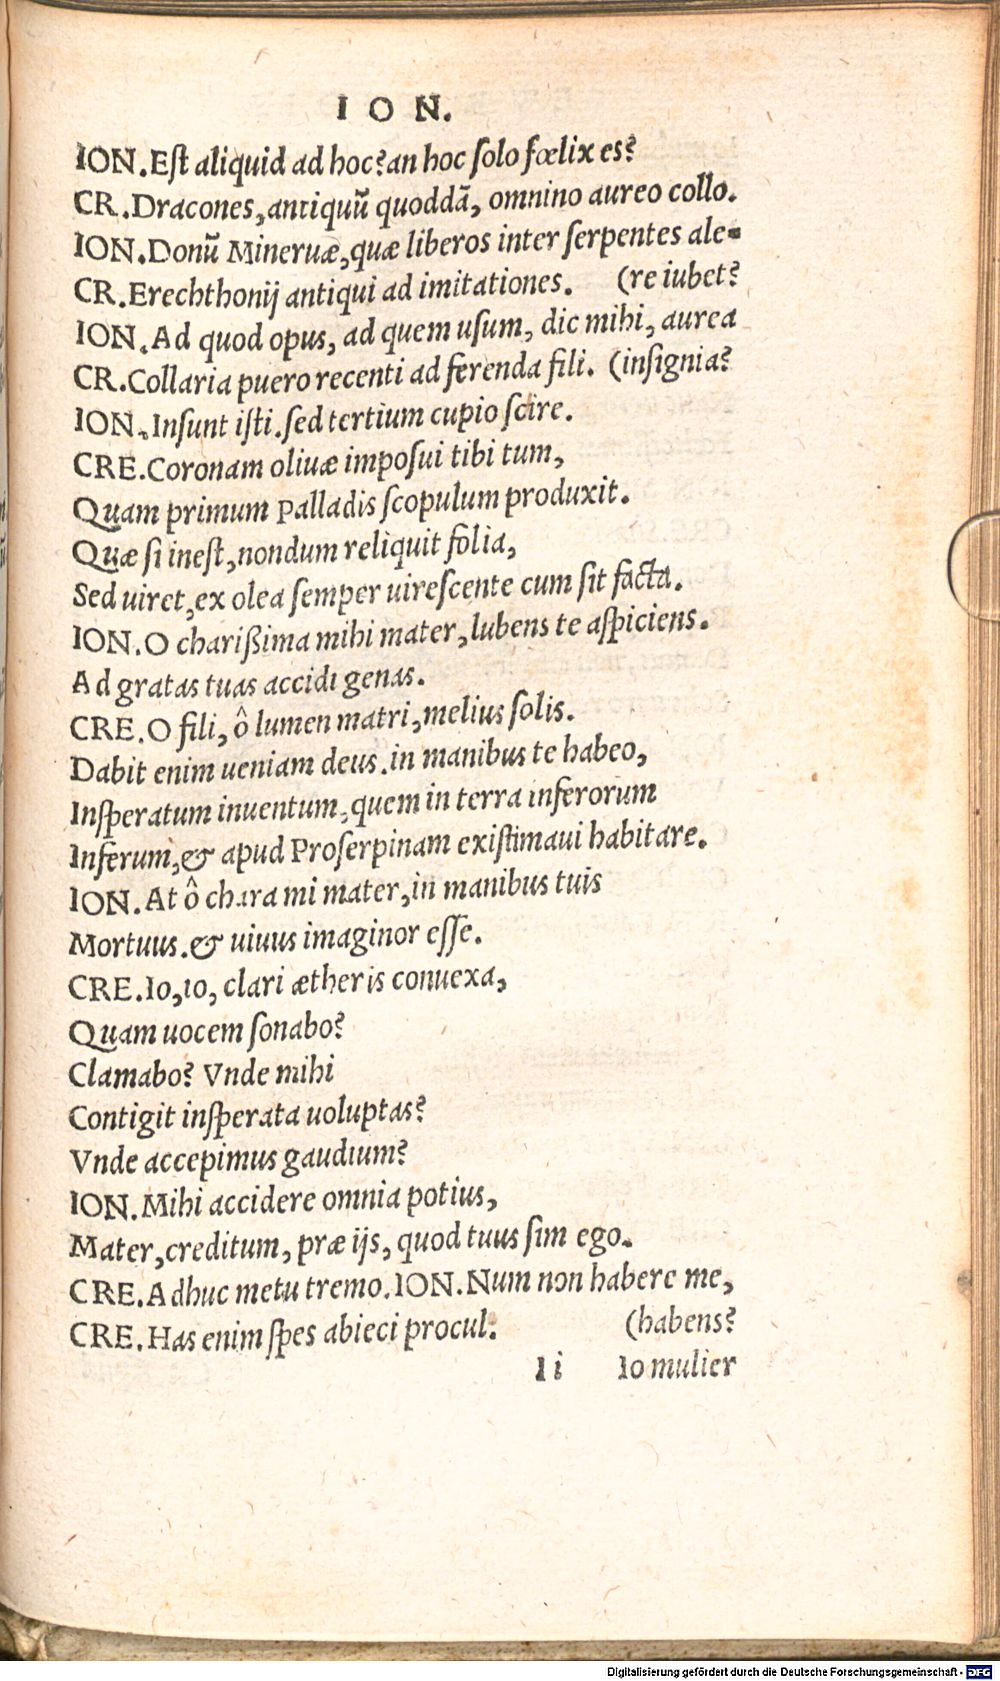 ION.
ION. Est aliquid ad hoc? an hoc solo fœlix es?
CR. Dracones, antiquũ quoddã, omnino aureo collo.
ION. Donũ Mineruæ, quæ liberos inter serpentes ale-
CR. Erechthonij antiqui ad imitationes. (re iubet?
ION. Ad quod opus, ad quem usum, dic mihi, aurea
CR. Collaria puero recenti ad ferenda fili. (insignia?
ION. Insunt isti. sed tertium cupio scire.
CRE. Coronam oliuæ imposui tibi tum,
Quam primum Palladis scopulum produxit.
Quæ si inest, nondum reliquit folia,
Sed uiret, ex olea semper uirescente cum sit facta.
ION. O charißima mihi mater, lubens te aspiciens.
Ad gratas tuas accidi genas.
CRE. O fili, ô lumen matri, melius solis.
Dabit enim ueniam deus. in manibus te habeo,
Insperatum inuentum, quem in terra inferorum
Inferum, & apud Proserpinam existimaui habitare.
ION. At ô chara mi mater, in manibus tuis
Mortuus. & uiuus imaginor esse.
CRE. Io, io, clari ætheris conuexa,
Quam uocem sonabo?
Clamabo? Vnde mihi
Contigit insperata uoluptas?
Vnde accepimus gaudium?
ION. Mihi accidere omnia potius,
Mater, creditum, præ ijs, quod tuus sim ego.
CRE. Adhuc metu tremo. ION. Num non habere me,
CRE. Has enim spes abieci procul. (habens?
Ii Io mulier
Digitalisierung gefördert durch die Deutsche Forschungsgemeinschaft - DFG